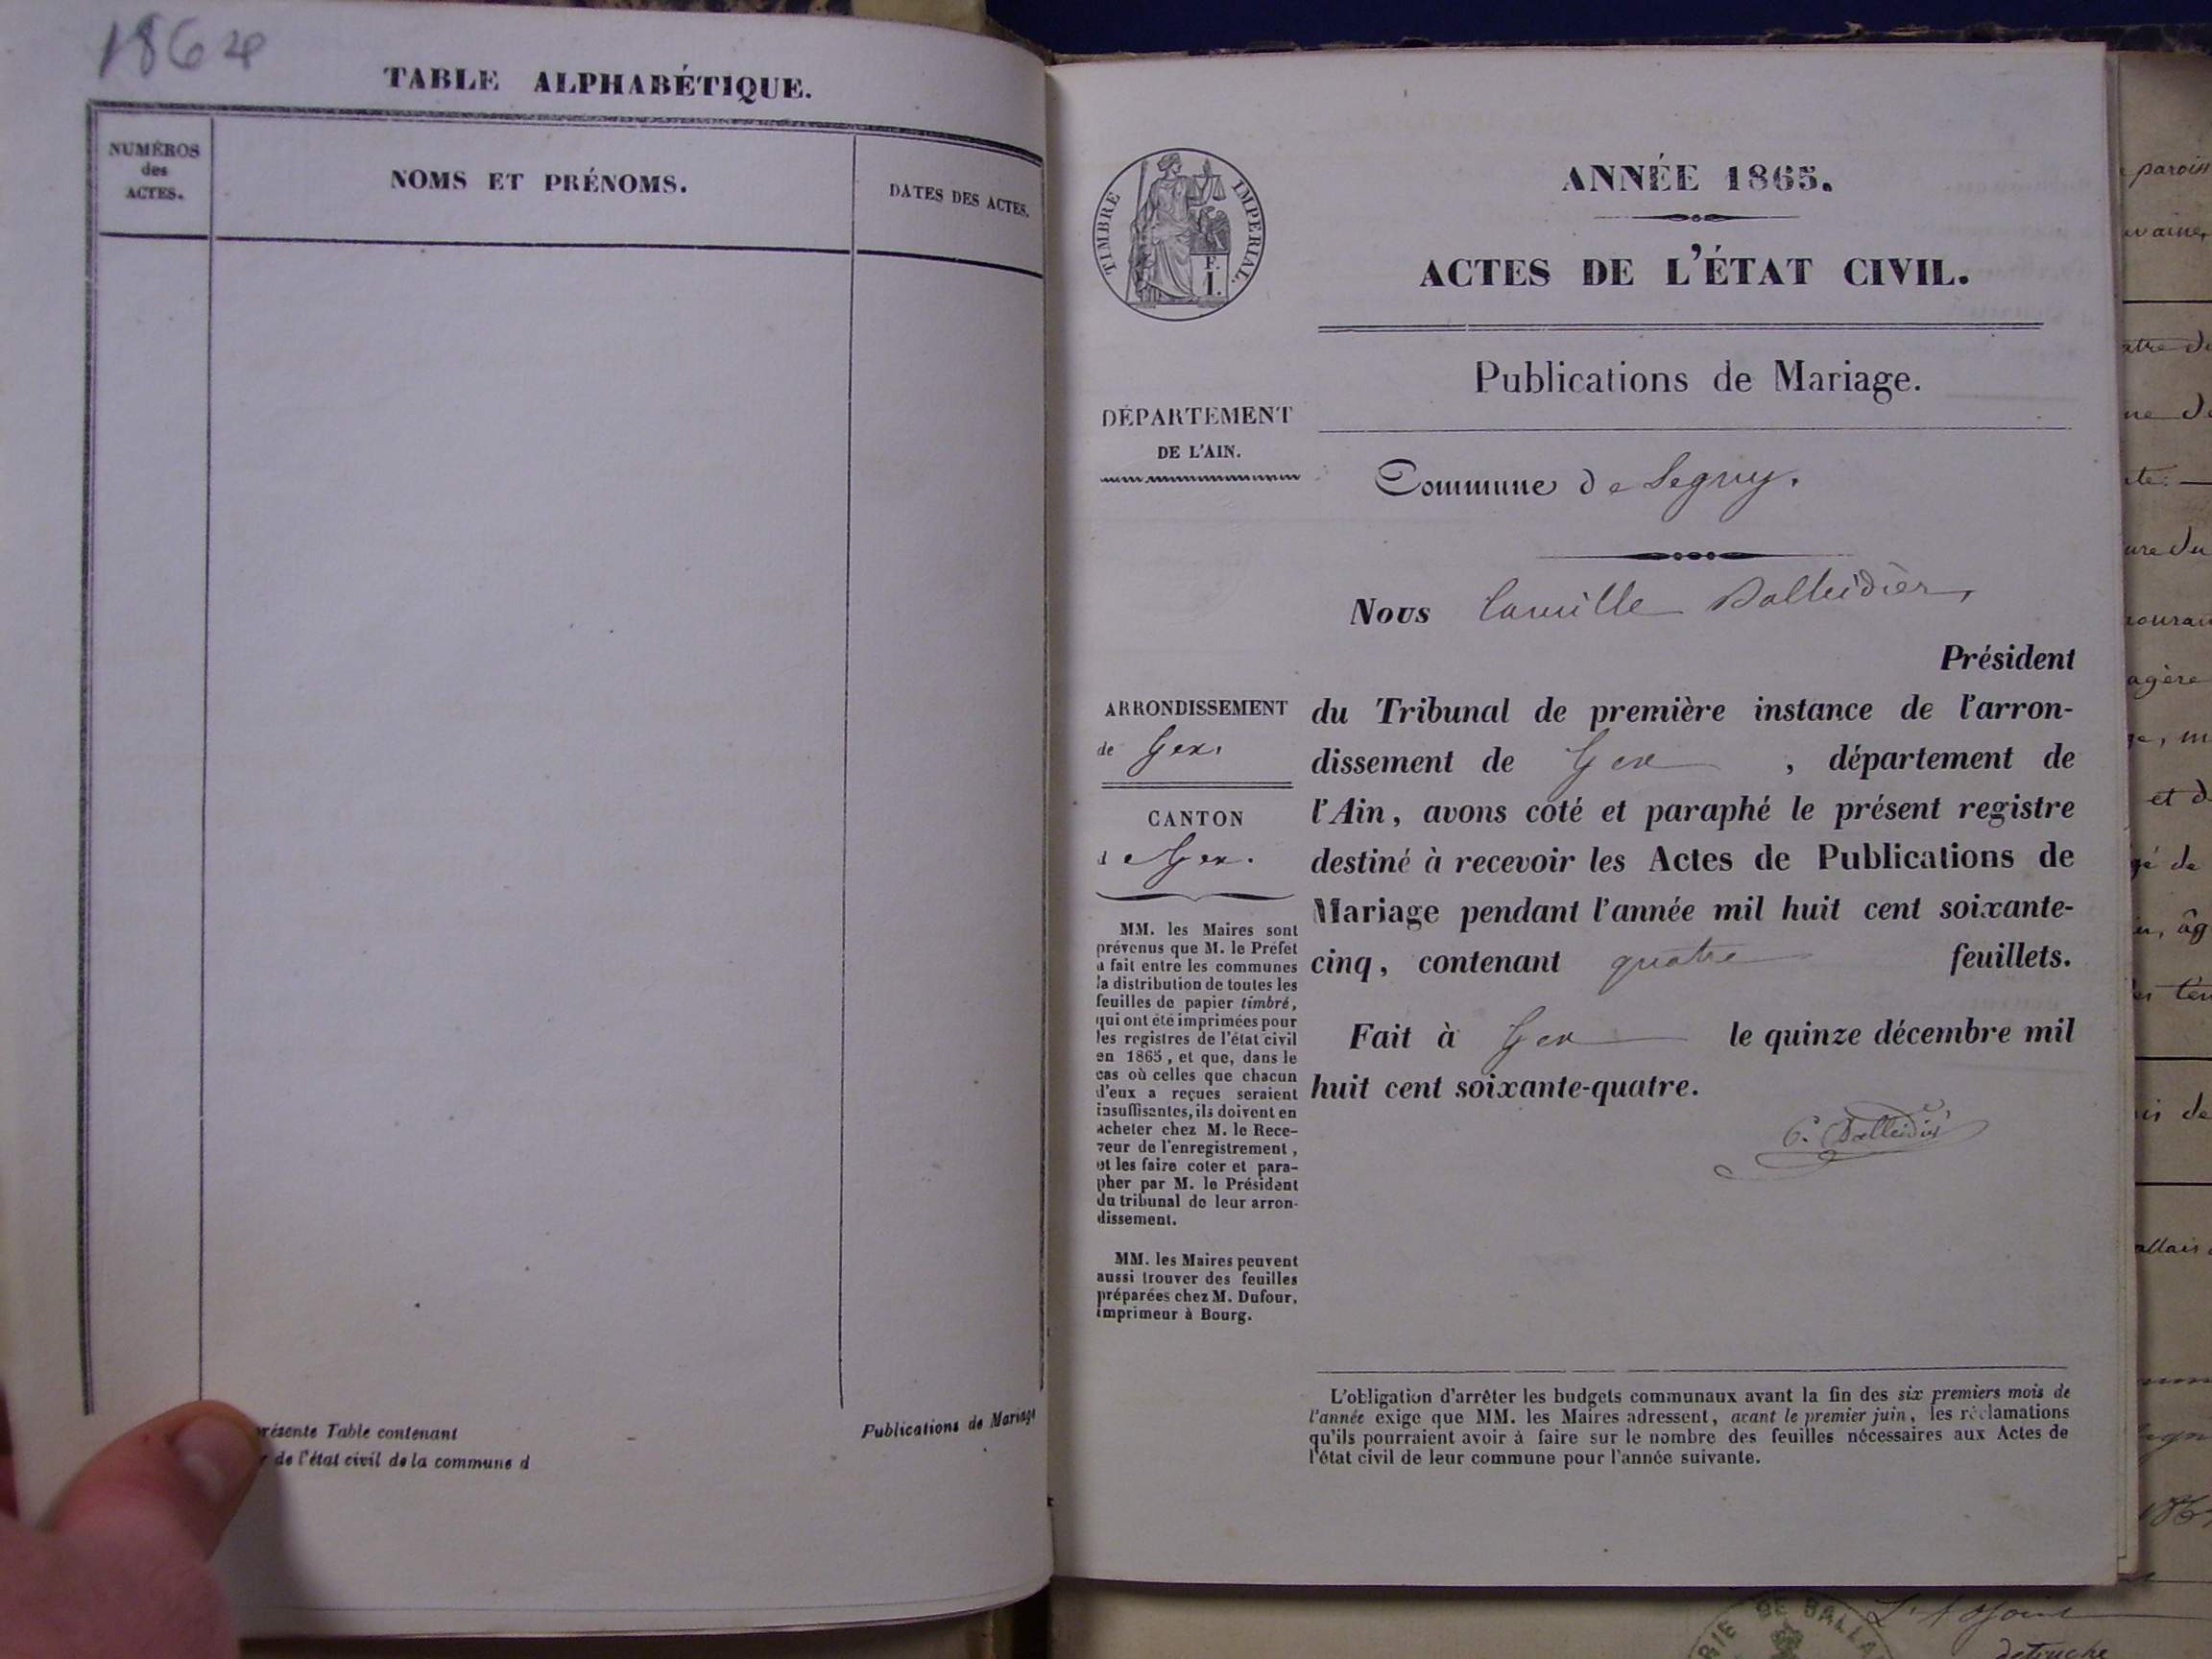 1864
TABLE ALPHABÉTIQUE.
NUMÉROS
des
ACTES.
NOMS ET PRÉNOMS.
DATES DES ACTES.
présente Table contenant
de l'état civil de la commune d
Publications de Mariage
TIMBRE IMPERIAL.
F.
1.
ANNÉE 1865.
ACTES DE L'ÉTAT CIVIL.
Publications de Mariage.
DÉPARTEMENT
DE L'AIN.
Commune de Segny.
Nous Camille Balleidier,
Président
ARRONDISSEMENT
de Gex.
CANTON
de Gex.
du Tribunal de première instance de l'arron-
dissement de Gex, département de
l'Ain, avons coté et paraphé le présent registre
destiné à recevoir les Actes de Publications de
Mariage pendant l'année mil huit cent soixante-
cinq, contenant quatre feuillets.
Fait à Gex le quinze décembre mil
huit cent soixante-quatre.
C. Balleidier
MM. les Maires sont
prévenus que M. le Préfet
a fait entre les communes
la distribution de toutes les
feuilles de papier timbré,
qui ont été imprimées pour
les registres de l'état civil
en 1865, et que, dans le
cas où celles que chacun
d'eux a reçues seraient
insuffisantes, ils doivent en
acheter chez M. le Rece-
veur de l'enregistrement,
et les faire coter et para-
pher par M. le Président
du tribunal de leur arron-
dissement.
MM. les Maires peuvent
aussi trouver des feuilles
préparées chez M. Dufour,
imprimeur à Bourg.
L'obligation d'arrêter les budgets communaux avant la fin des six premiers mois de
l'année exige que MM. les Maires adressent, avant le premier juin, les réclamations
qu'ils pourraient avoir à faire sur le nombre des feuilles nécessaires aux Actes de
l'état civil de leur commune pour l'année suivante.
et d
RIE DE BALLA
L'Adjoint
detruche